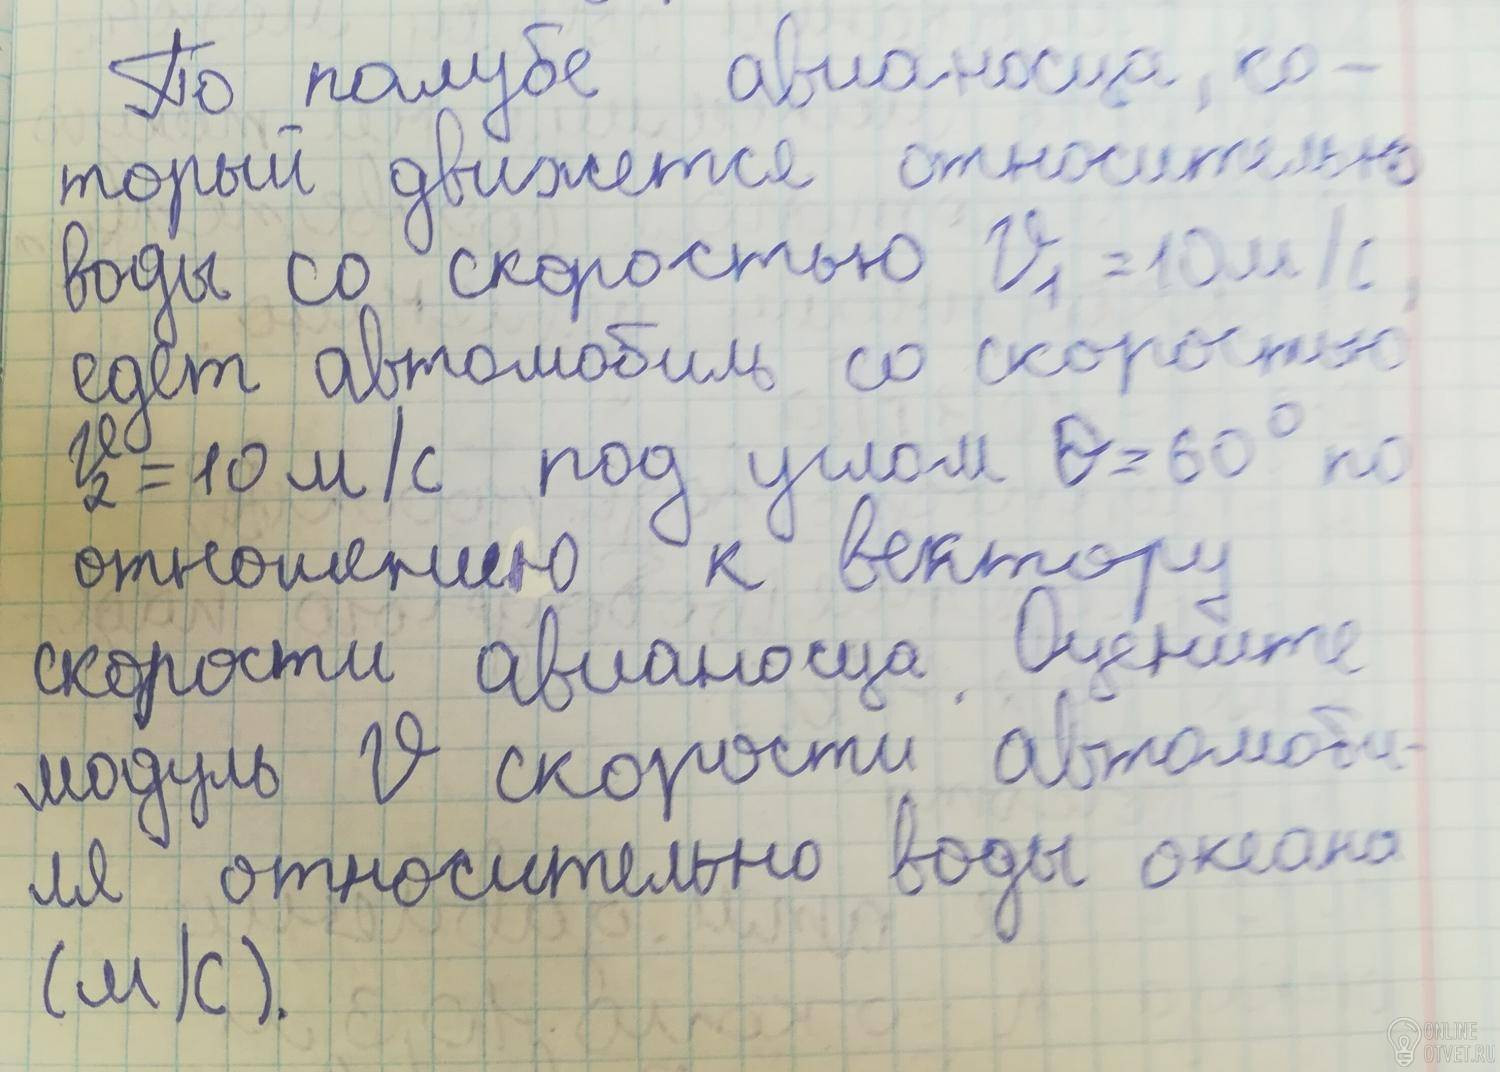 По палубе авианосца, ко-
торый движется относительно
воды со скоростью V₁ = 10 м/с,
едет автомобиль со скоростью
V₂ = 10 м/с под углом θ = 60° по
отношению к вектору
скорости авианосца. Оцените
модуль V скорости автомоби-
ля относительно воды океана
(м/с).
ONLINE
OTVET.RU